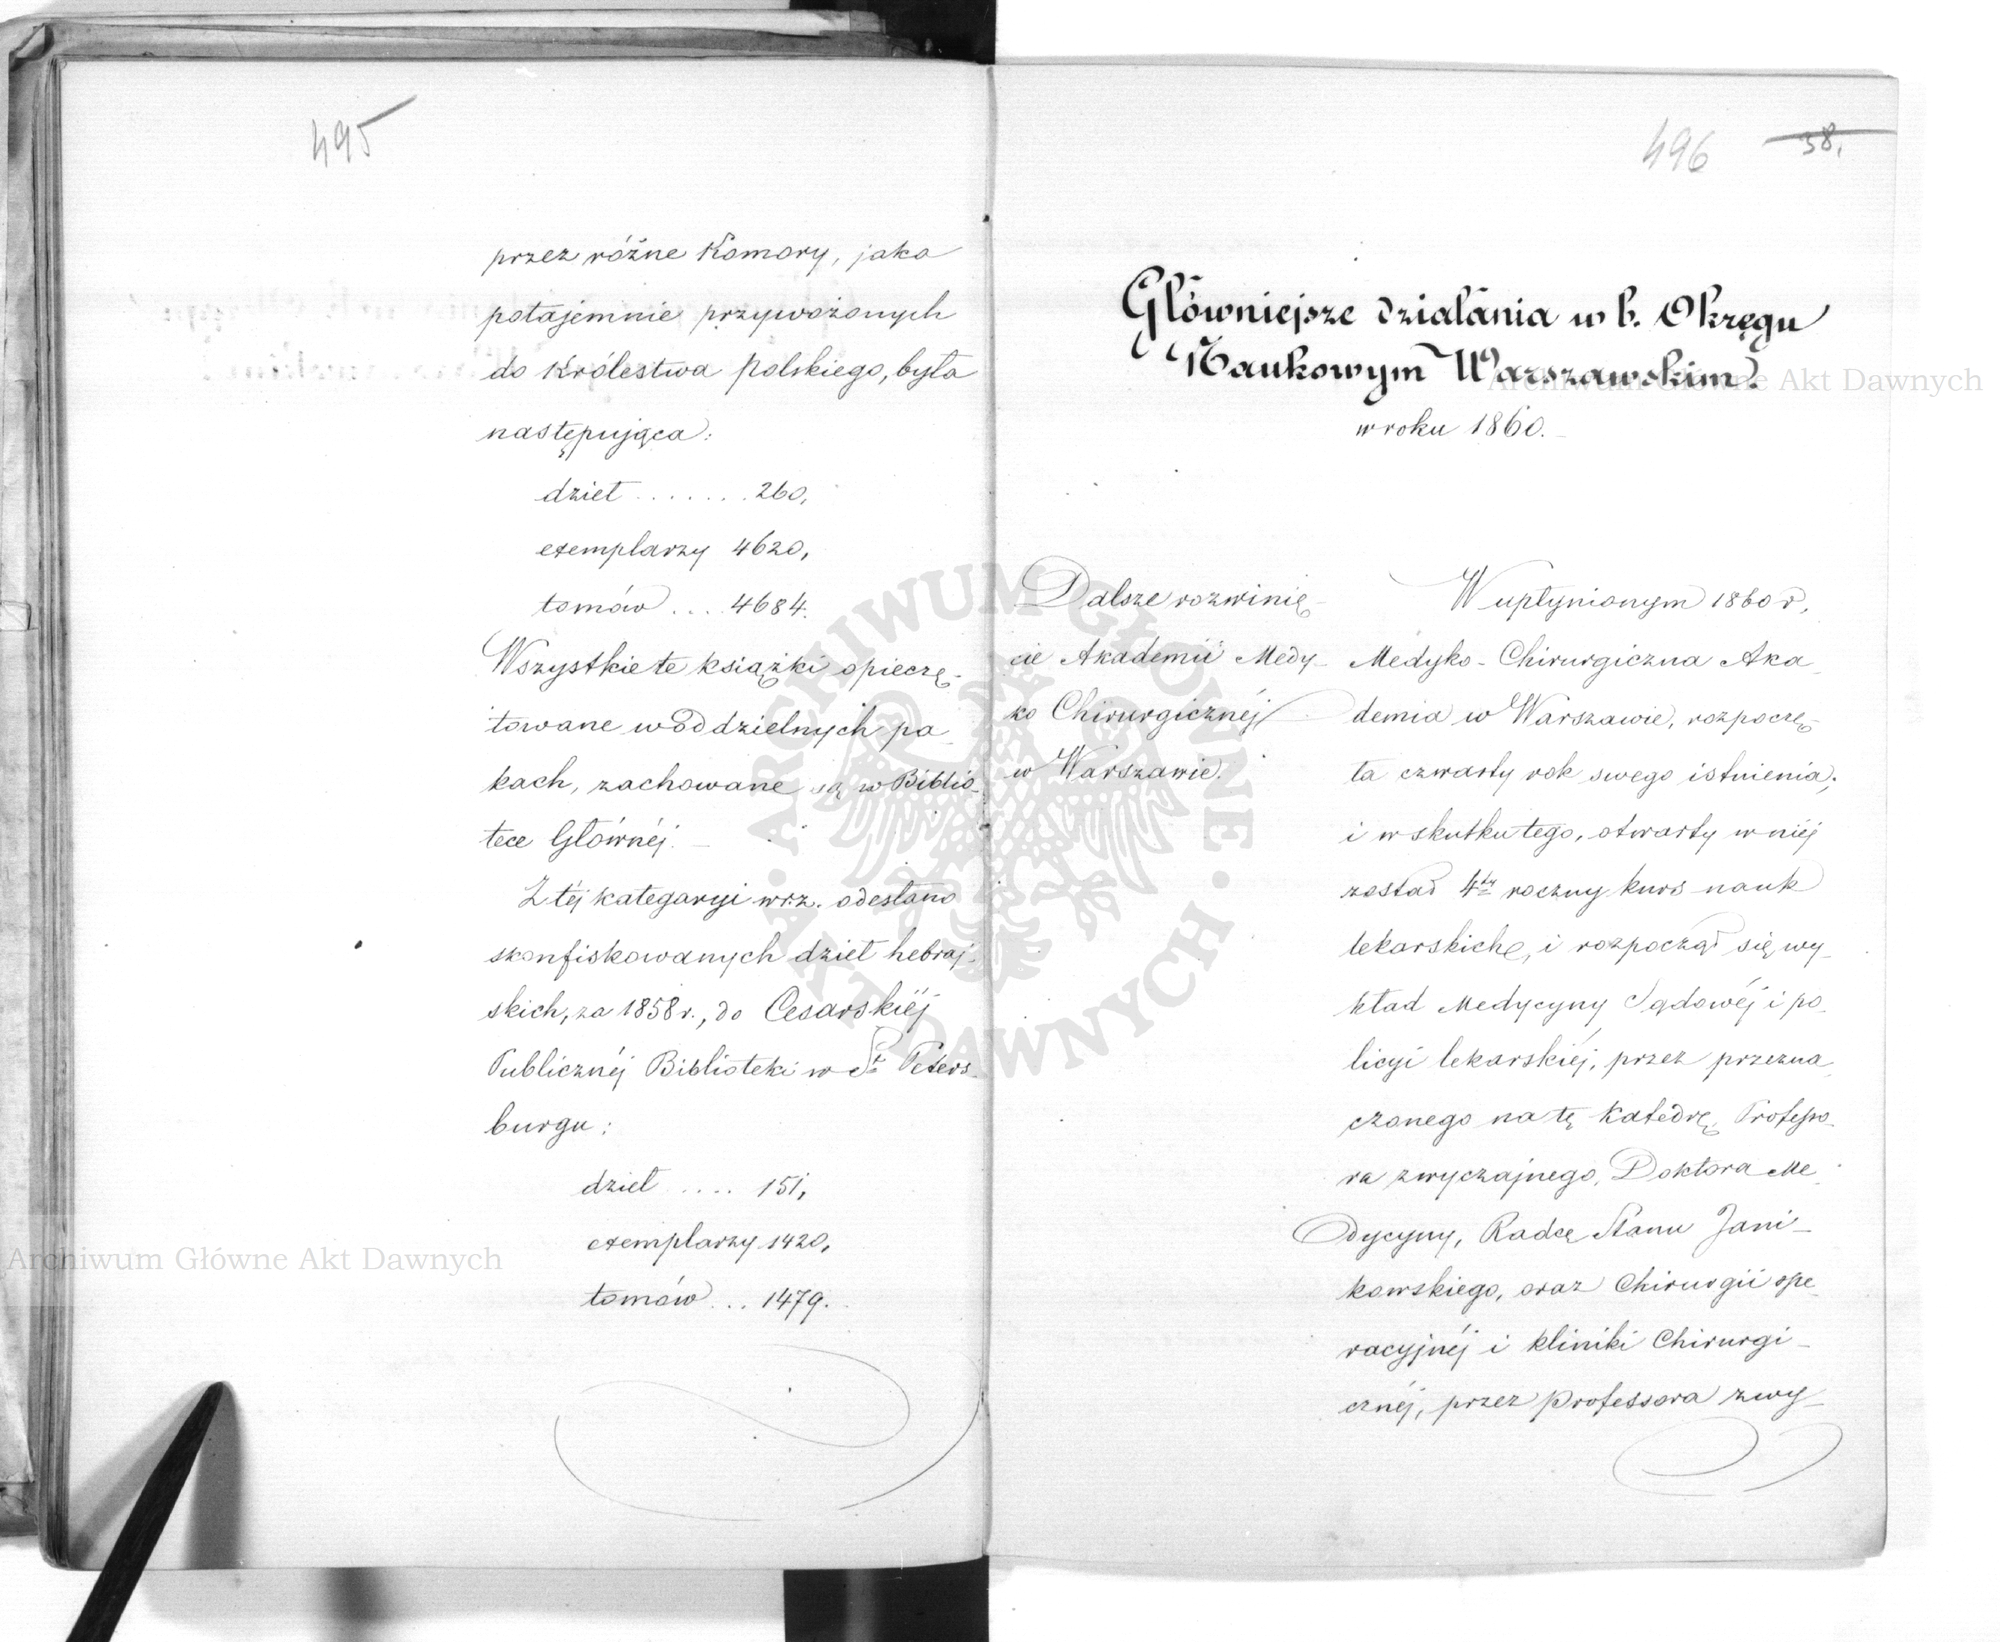 495
przez różne Komory, jako
potajemnie przywożonych
do Królestwa Polskiego, była
następująca:
dzieł ....... 260,
exemplarzy 4620,
tomów .... 4684.
Wszystkie te książki opieczę-
towane w oddzielnych pa-
kach, zachowane są w Biblio-
tece Głównéj. –
Z téj kategoryi w r.z. odesłano
skonfiskowanych dzieł hebraj-
skich, za 1858 r., do Cesarskiéj
Publicznéj Biblioteki w St Peters-
burgu:
dzieł ..... 151,
exemplarzy 1420,
tomów ... 1479.
496 38.
Główniejsze działania w b. Okręgu
Naukowym Warszawskim.
w roku 1860.
Dalsze rozwinię-
cie Akademii Medy-
ko Chirurgicznéj
w Warszawie.
W upłynionym 1860 r.
Medyko-Chirurgiczna Aka-
demia w Warszawie, rozpoczę-
ta czwarty rok swego istnienia;
i w skutku tego, otwarty w niéj
został 4ty roczny kurs nauk
lekarskich, i rozpoczął się wy-
kład Medycyny Sądowéj i po-
licyi lekarskiéj, przez przezna-
czonego na tę Katedrę, Professo-
ra zwyczajnego, Doktora Me-
dycyny, Radcę Stanu Jani-
kowskiego, oraz Chirurgii ope-
racyjnéj i kliniki Chirurgi-
cznéj, przez Professora zwy-
Archiwum Główne Akt Dawnych
Archiwum Główne Akt Dawnych
· ARCHIWUM GŁÓWNE · AKT DAWNYCH ·